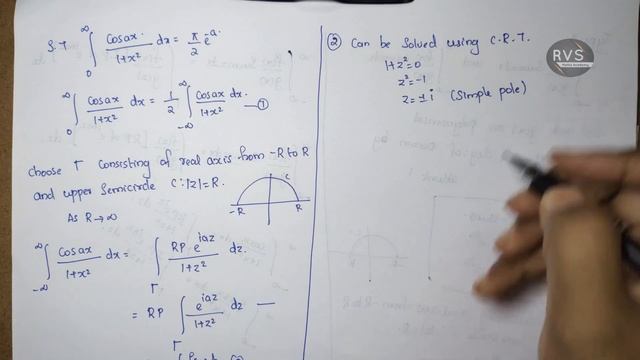 S.T ∫₀^∞ cosax/(1+x²) dx = π/2 e^-a.
∫₀^∞ cosax/(1+x²) dx = 1/2 ∫_-∞^∞ cosax/(1+x²) dx. — ①
choose Γ consisting of real axis from -R to R
and upper semicircle C:|z|=R.
As R→∞
C
-R R
∫_-∞^∞ cosax/(1+x²) dx = ∫_Γ RP e^iaz/(1+z²) dz.
= RP ∫_Γ e^iaz/(1+z²) dz —
② can be solved using C.R.T.
1+z²=0
z²=-1
z=±i (simple pole)
RVS